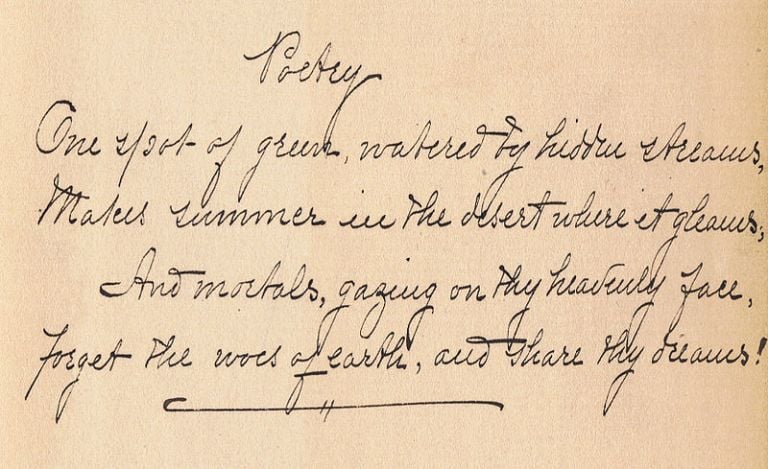 Poetry
One spot of green, watered by hidden streams,
Makes summer in the desert where it gleams;
And mortals, gazing on thy heavenly face,
forget the woes of earth, and share thy dreams!